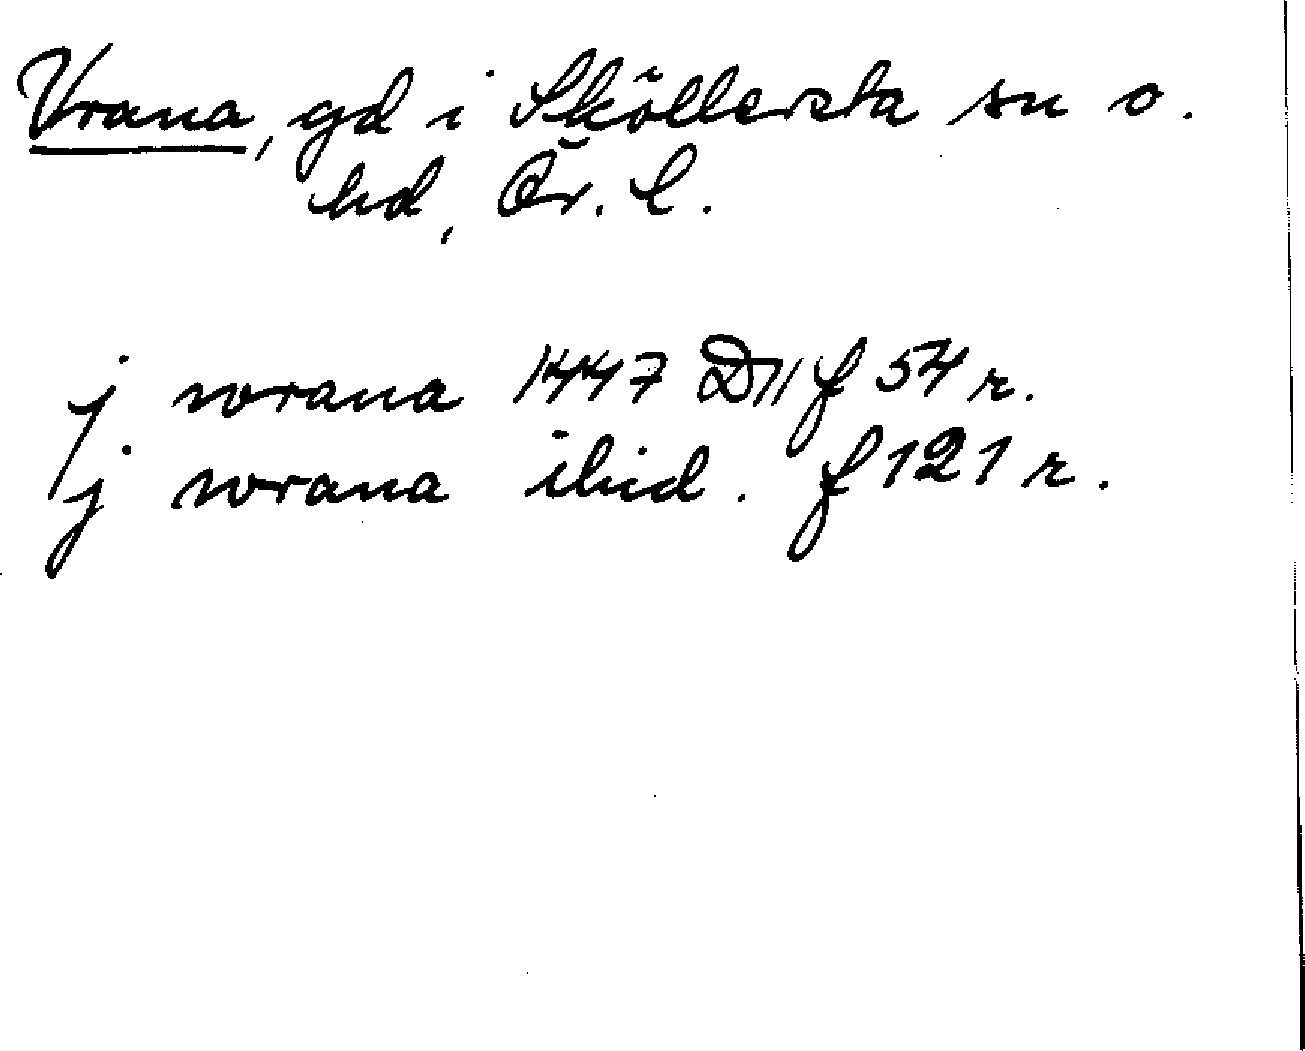 Vrana, gd i Sköllersta sn o.
hd, Ör. l.
j wrana 1447 D11 f 54 r.
j wrana ibid. f 121 r.